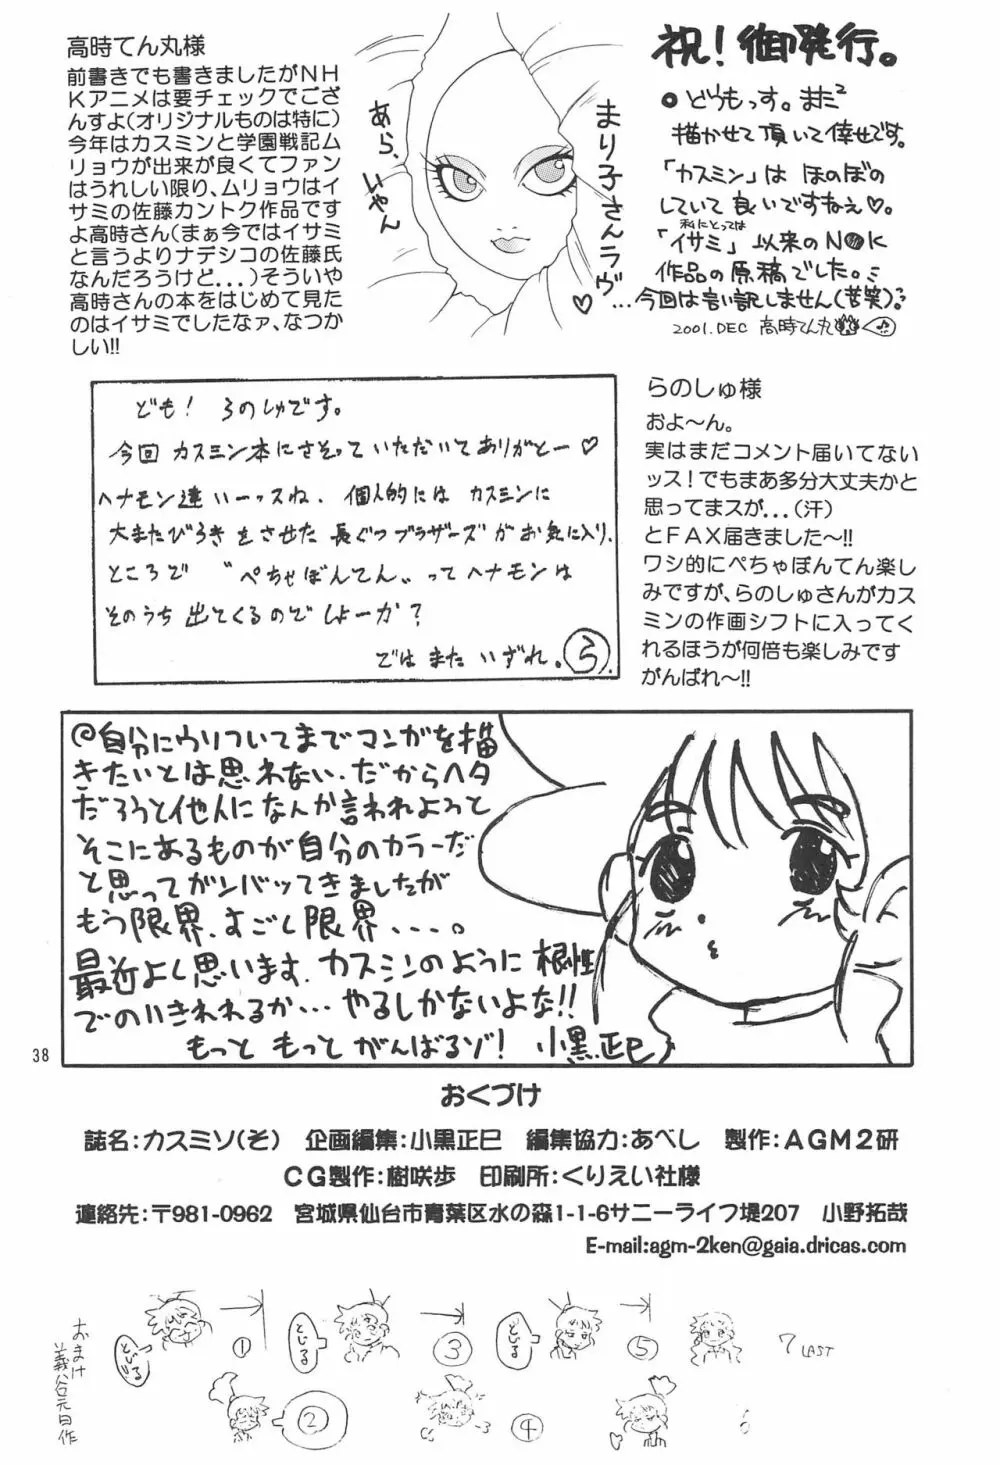 高時てん丸様
前書きでも書きましたがNH
Kアニメは要チェックでござ
んすよ(オリジナルものは特に)
今年はカスミンと学園戦記ム
リョウが出来が良くてファン
はうれしい限り、ムリョウはイ
サミの佐藤カントク作品です
よ高時さん(まぁ今ではイサミ
と言うよりナデシコの佐藤氏
なんだろうけど...)そういや
高時さんの本をはじめて見た
のはイサミでしたなァ、なつか
しい!!
あら、
いやん
まり子さんラヴ♡
祝!御発行。
●どうもっす。また²
描かせて頂いて倖せです。
「カスミン」は ほのぼの
していて良いですねぇ♡。
私にとっては
「イサミ」以来のN●K
作品の原稿でした。
…今回は言い訳しません(苦笑)。
2001.DEC 高時てん丸
ども! らのしゅです。
今回 カスミン本にさそっていただいてありがとー♡
ヘナモン達いーっスね、個人的には カスミンに
大またびらきをさせた 長ぐつブラザーズがお気に入り。
ところで “ぺちゃぽんてん„ってヘナモンは
そのうち出てくるのでしょーか?
ではまたいずれ。ら.
らのしゅ様
およ〜ん。
実はまだコメント届いてない
ッス!でもまあ多分大丈夫かと
思ってまスが...(汗)
とFAX届きました〜!!
ワシ的にぺちゃぽんてん楽し
みですが、らのしゅさんがカス
ミンの作画シフトに入ってく
れるほうが何倍も楽しみです
がんばれ〜!!
@自分にウソついてまでマンガを描
きたいとは思わない.だからヘタ
だろうと他人になんか言われようと
そこにあるものが自分のカラーだ
と思ってガンバッてきましたが
もう限界.すごし限界....。
最近よし思います.カスミンのように根性
でのりきれるか…やるしかないよな!!
もっと もっと がんばるゾ! 小黒正巳
38
おくづけ
誌名:カスミソ(そ) 企画編集:小黒正巳 編集協力:あべし 製作:AGM2研
CG製作:樹咲歩 印刷所:くりえい社様
連絡先:〒981-0962 宮城県仙台市青葉区水の森1-1-6サニーライフ堤207 小野拓哉
E-mail:agm-2ken@gaia.dricas.com
おまけ
義谷元日作
とじる
①
②
とじる
③
④
とじる
⑤
6
7 LAST